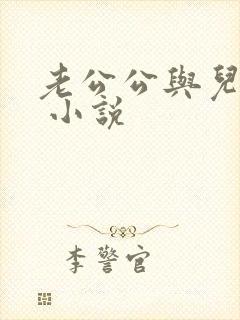 老公公與兒
小說
李警官